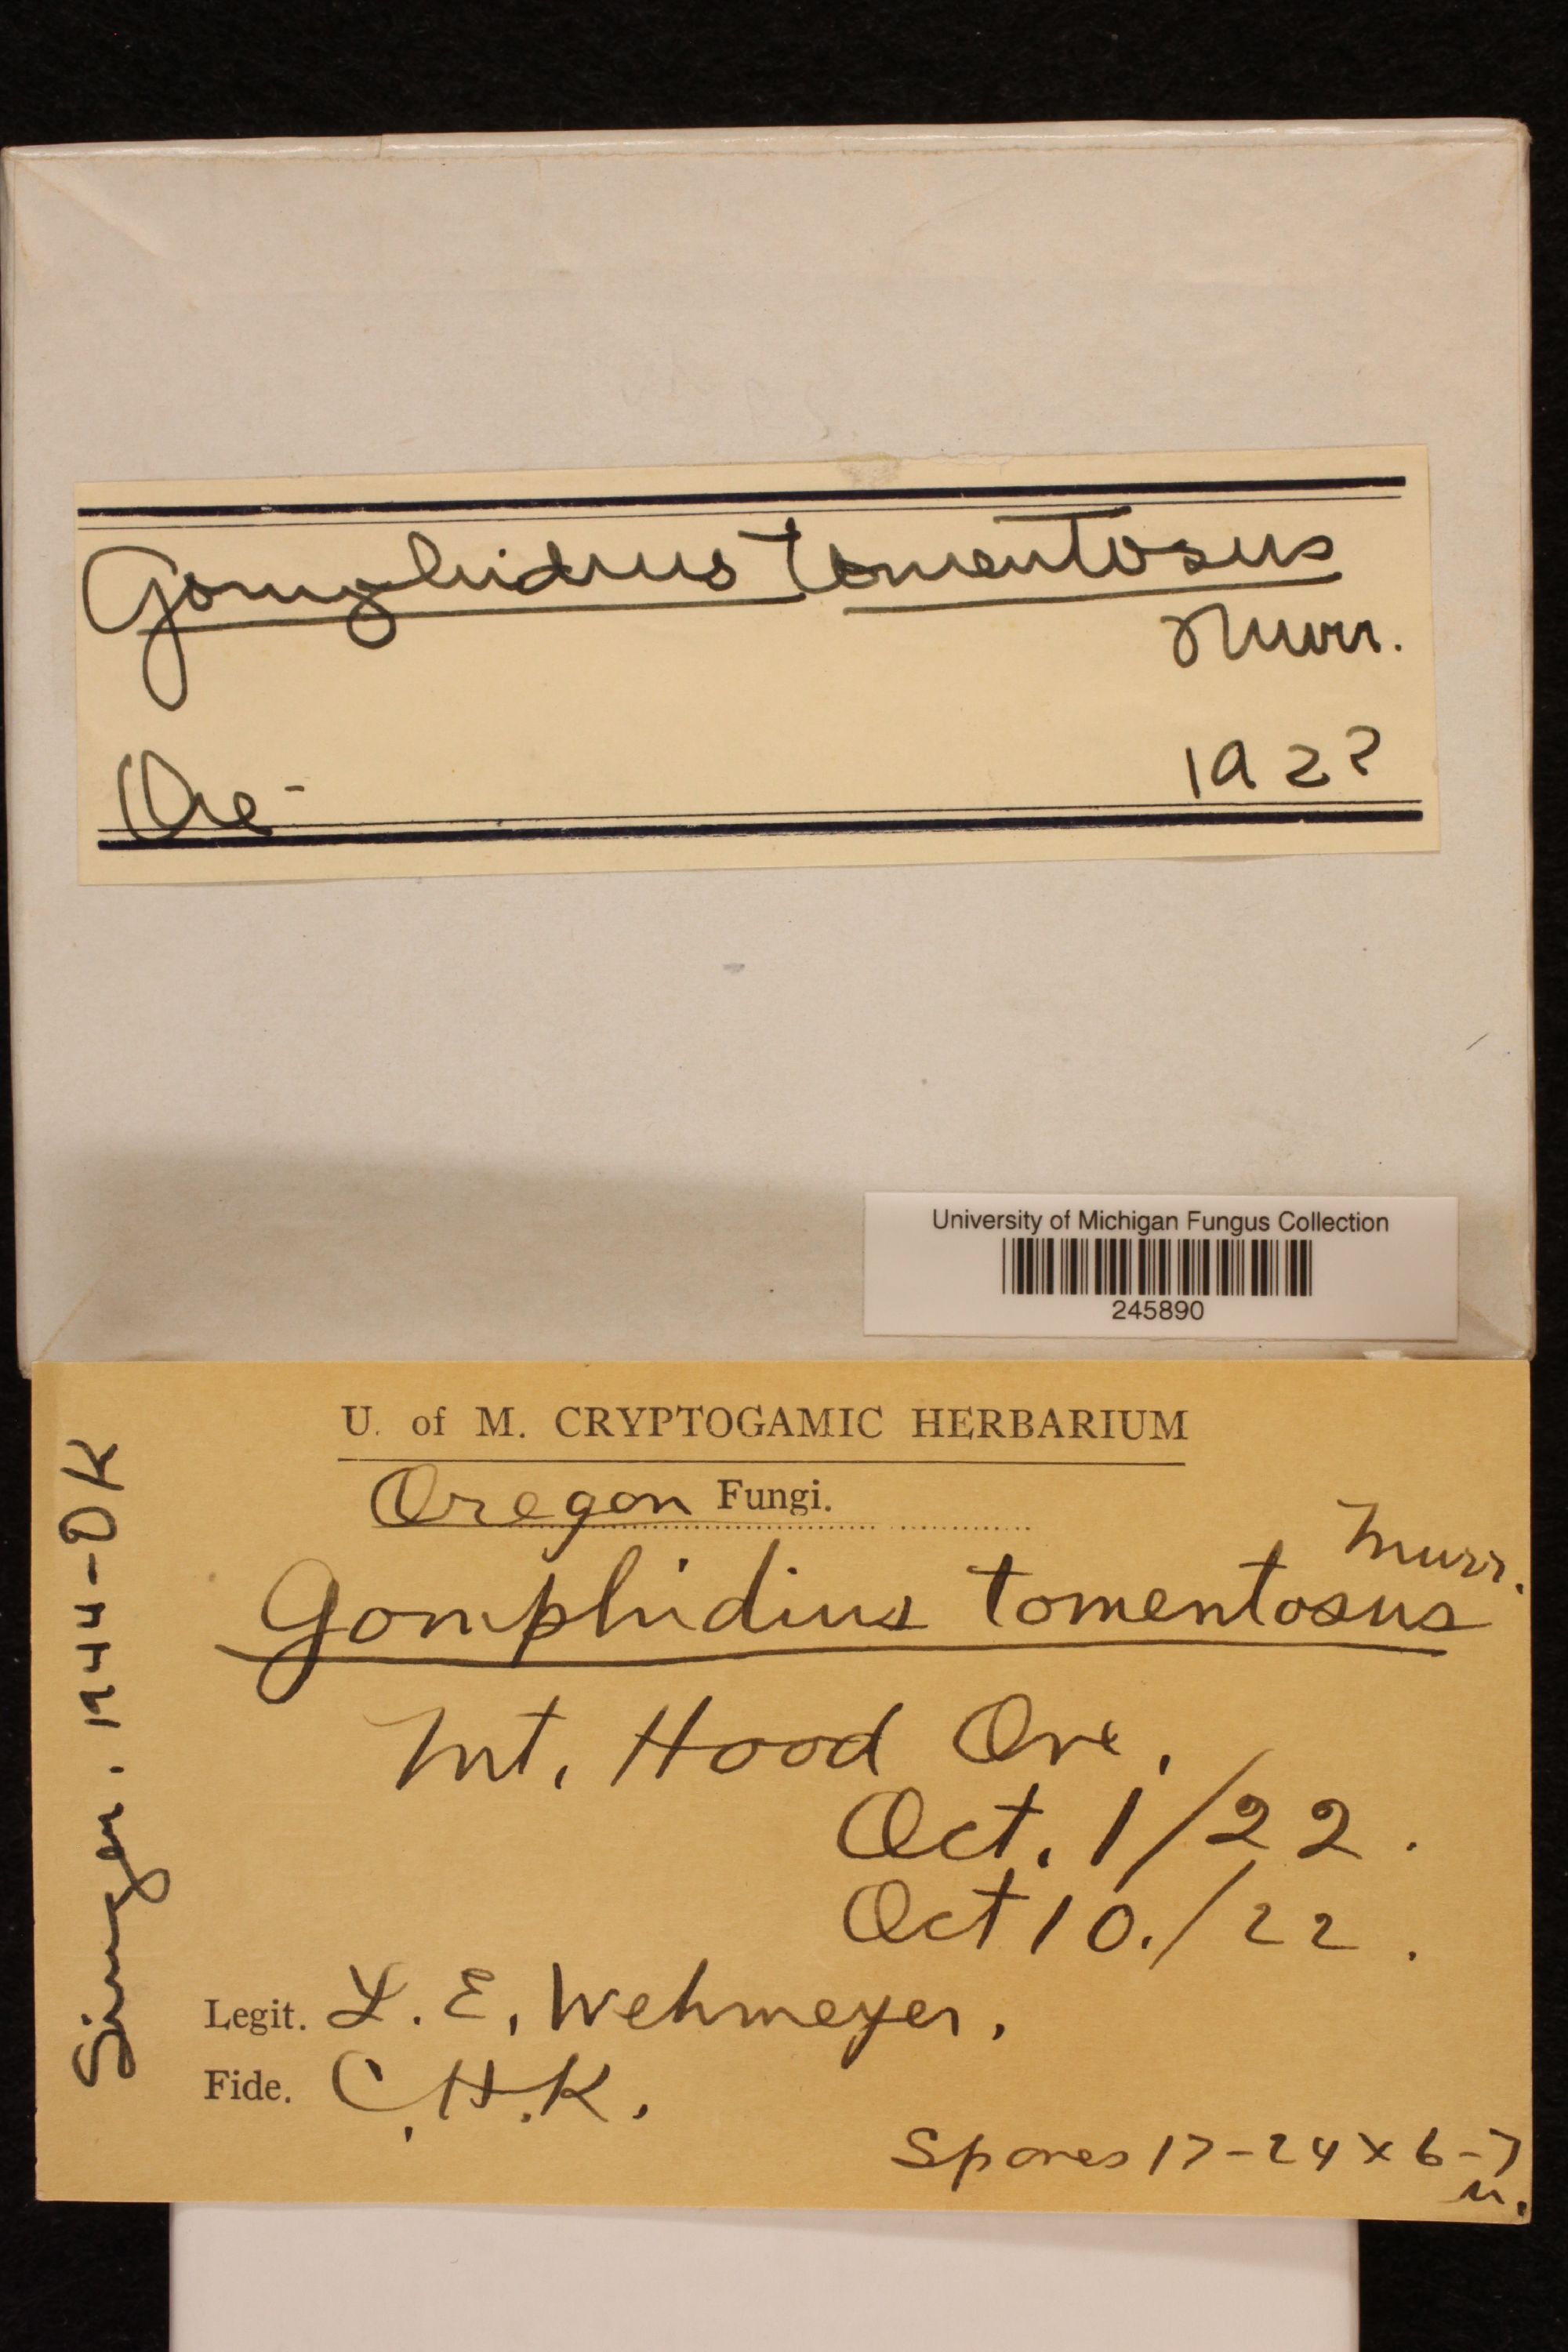 Gomphidius tomentosus
Murr.
Ore- 1922
University of Michigan Fungus Collection
245890
U. of M. CRYPTOGAMIC HERBARIUM
Oregon Fungi.
Murr.
Gomphidius tomentosus
Mt. Hood Ore.
Oct. 1/22.
Oct 10./22.
Legit. L. E. Wehmeyer.
Fide. C. H. K.
Spores 17-24 x 6-7
u.
Singer. 1944-OK